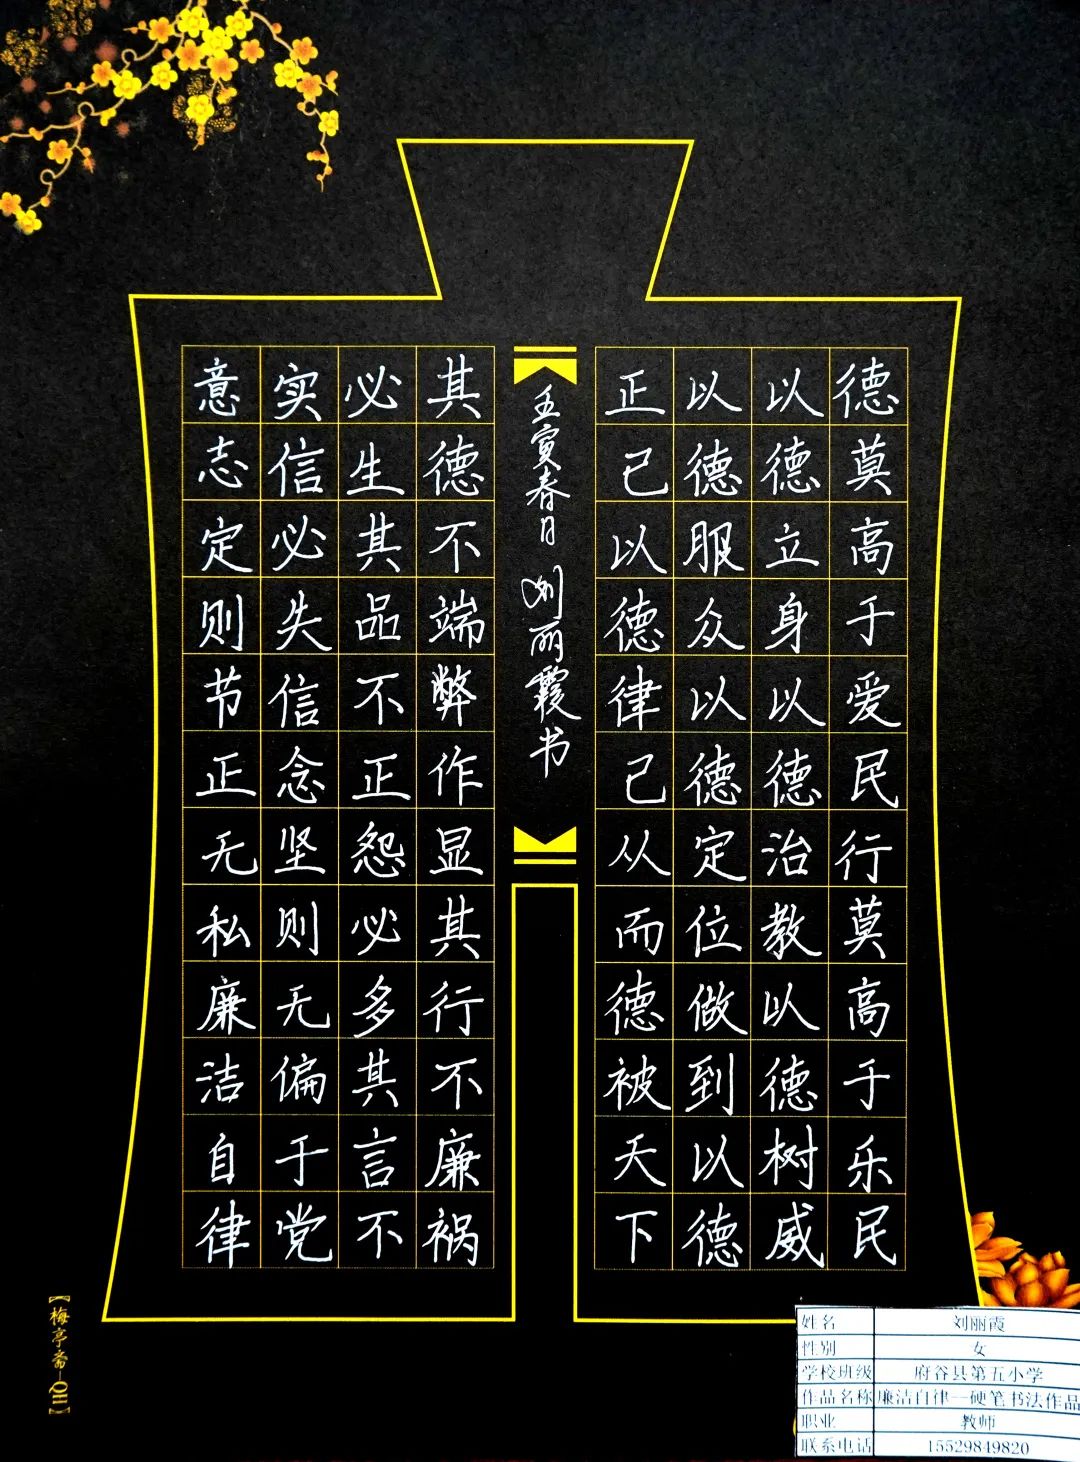 德莫高于爱民行莫高于乐民
以德立身以德治教以德树威
以德服众以德定位做到以德
正己以德律己从而德被天下
壬寅春日 刘丽霞书
其德不端弊作显其行不廉祸
必生其品不正怨必多其言不
实信必失信念坚则无偏于党
意志定则节正无私廉洁自律
【梅亭斋—QH】
姓名 刘丽霞
性别 女
学校班级 府谷县第五小学
作品名称 廉洁自律—硬笔书法作品
职业 教师
联系电话 15529849820